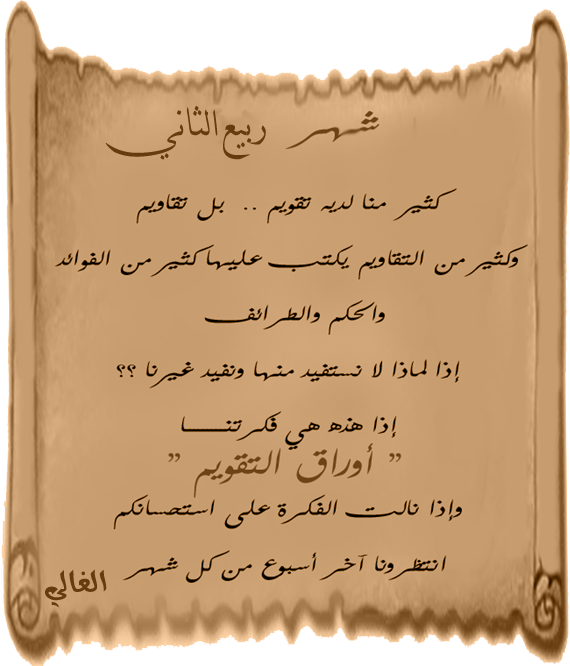 شهر ربيع الثاني
كثير منا لديه تقويم .. بل تقاويم
وكثير من التقاويم يكتب عليها كثير من الفوائد
والحكم والطرائف
إذا لماذا لا نستفيد منها ونفيد غيرنا ؟؟
إذا هذه هي فكرتنـــــا
" أوراق التقويم "
وإذا نالت الفكرة على استحسانكم
انتظرونا آخر أسبوع من كل شهر
الغالي